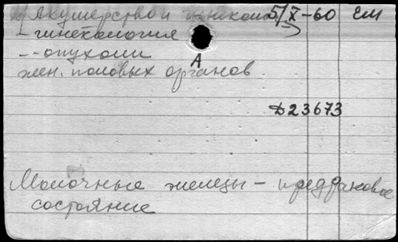 Акушерство и гинекол 5/X-60 ем
- гинекология
-- опухоли
жен. половых органов
А
Д23673
Молочные железы - предраковое
состояние